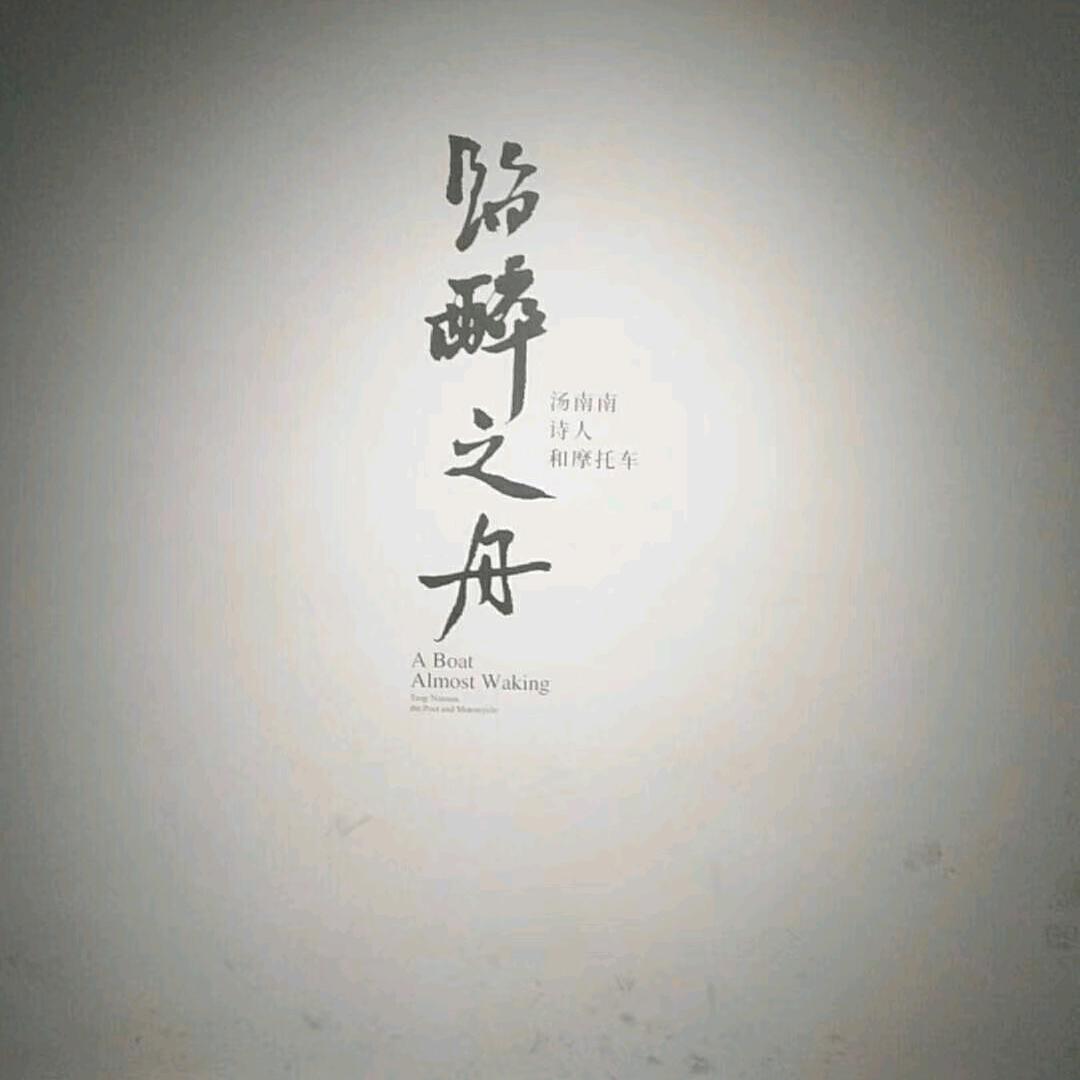 陷醉之舟
汤南南
诗人
和摩托车
A Boat
Almost Waking
Tang Nannan,
the Poet and Motorcycle